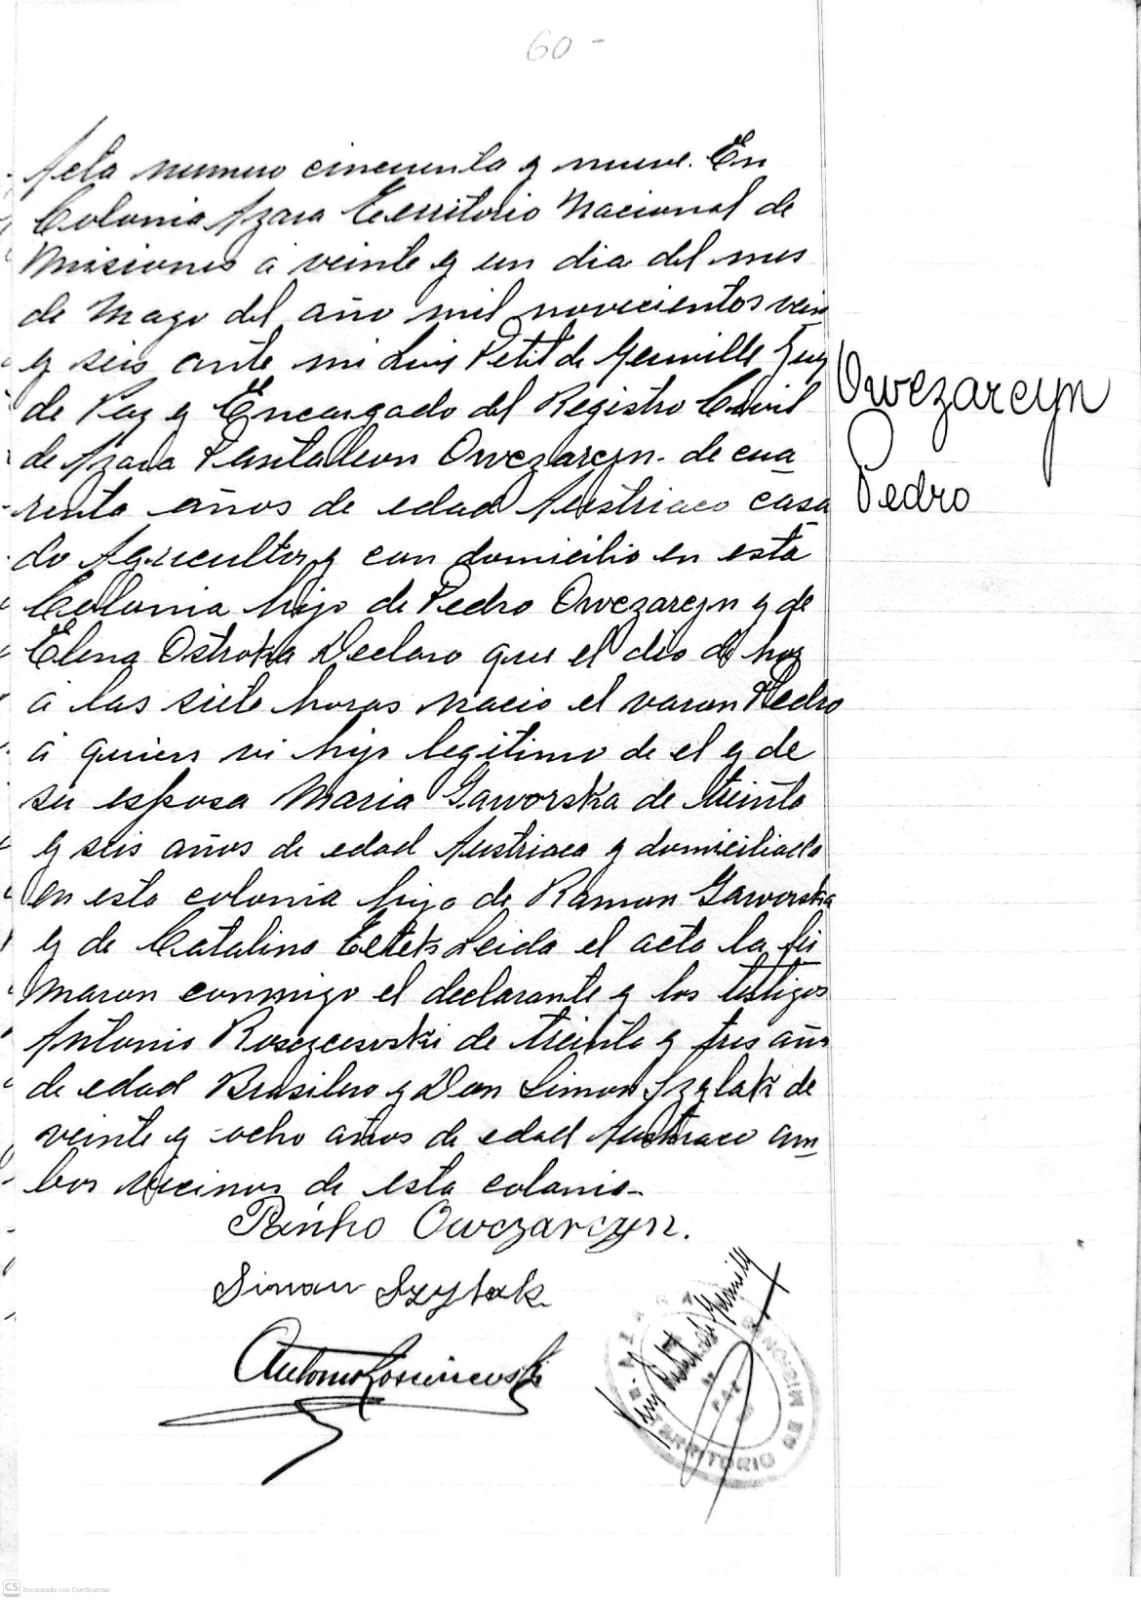 60-
Acta numero cincuenta y nueve. En
Colonia Azara Territorio Nacional de
Misiones á veinte y un dia del mes
de Mayo del año mil novecientos vein
y seis ante mi Luis Petit de Meurville Juez
de Paz y Encargado del Registro Civil
de Azara Pantaleon Owczarcyn. de cua
renta años de edad Austriaco casa
do Agricultor y con domicilio en esta
Colonia hijo de Pedro Owezarcyn y de
Elena Ostroka Declaro que el dia de hoy
á las siete horas nacio el varon Pedro
á quien vi hijo legitimo de el y de
su esposa Maria Gaworska de treinta
y seis años de edad Austriaca y domiciliada
en esta colonia hija de Ramon Gaworska
y de Catalina Leida el acta la fir
maron conmigo el declarante y los testigos
Antonio de treinta y tres años
de edad Brasilero y Don Simon Szylak de
veinte y ocho años de edad Austriaco am
bos vecinos de esta colonia-
Owezarcyn
Pedro
Pańko Owczarczyn.
Simon Szylak
Antonio
TERRITORIO DE MISIONES
JUZ DE PAZ
CS Escaneado con CamScanner